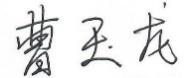 曹玉龙